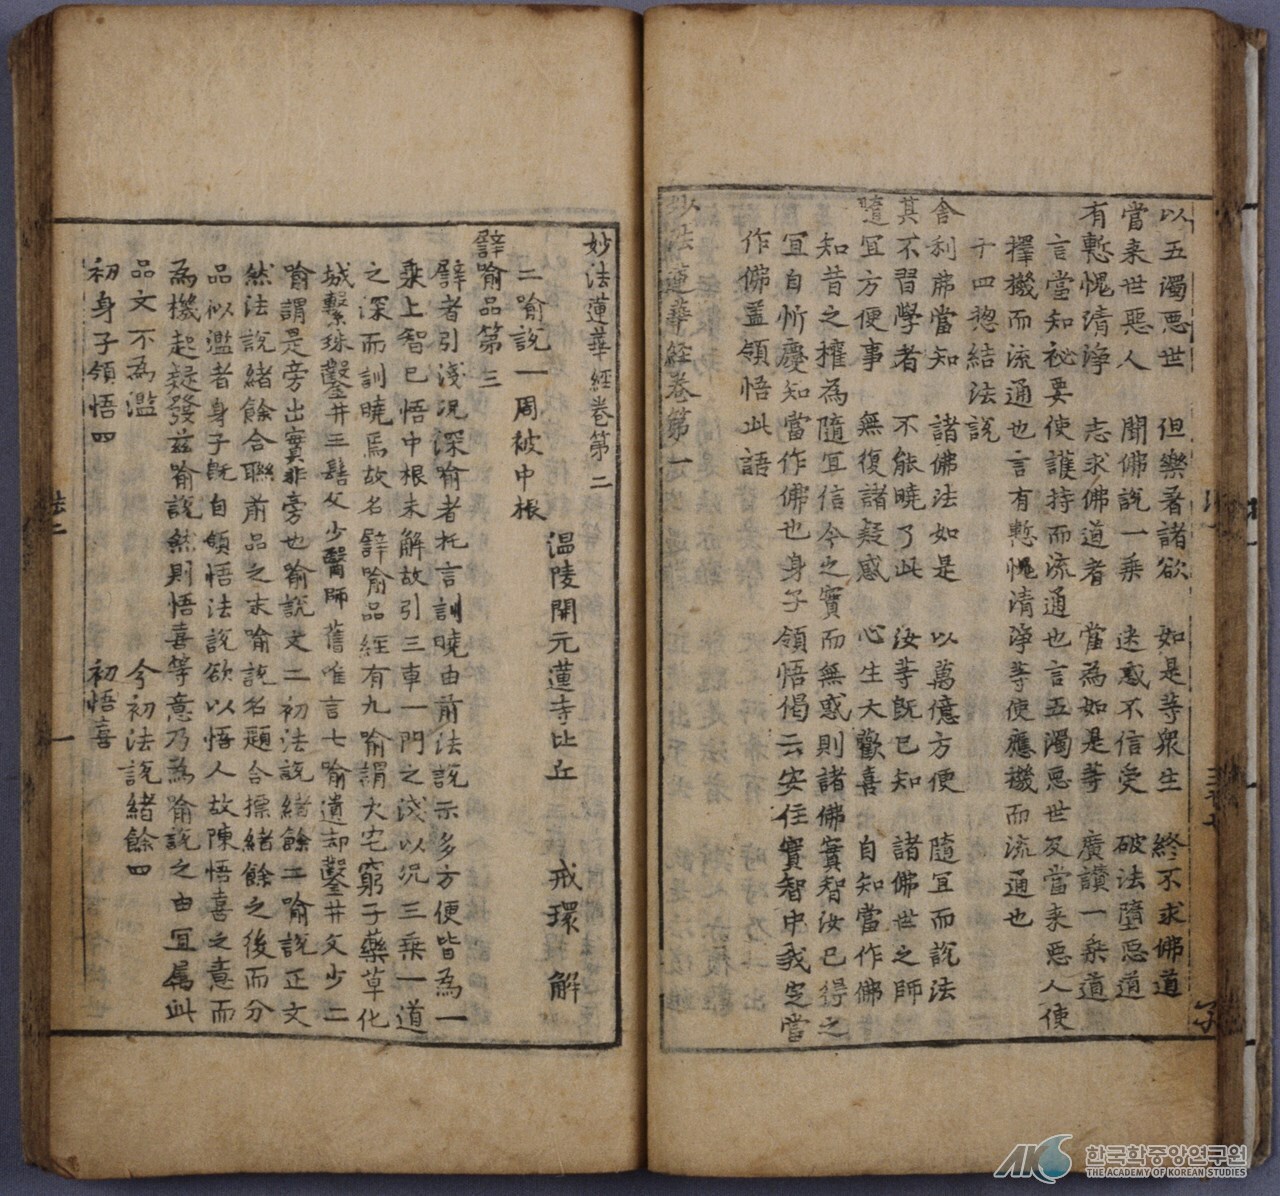 以五濁惡世 但樂著諸欲 如是等衆生 終不求佛道
當来世惡人 聞佛說一乗 迷惑不信受 破法墮惡道
有慙愧清淨 志求佛道者 當為如是等 廣讃一乗道
言當知祕要使護持而流通也言五濁惡世及當来惡人使
擇機而流通也言有慙愧清淨等使應機而流通也
子四惣結法說
舎利弗當知 諸佛法如是 以萬億方便 隨冝而說法
其不習學者 不能曉了此 汝等旣已知 諸佛世之師
隨冝方便事 無復諸疑惑 心生大歡喜 自知當作佛
知昔之權為隨冝信今之實而無惑則諸佛實智汝已得之
冝自忻慶知當作佛也身子領悟偈云安住實智中我定當
作佛盖領悟此語
妙法蓮華経卷第一
妙法蓮華經卷第二
温陵開元蓮寺比丘 戒環 解
二喻說一周被中根
譬喻品第三
譬者引淺況深喻者托言訓曉由前法說示多方便皆為一
乘上智已悟中根未解故引三車一門之淺以況三乗一道
之深而訓曉焉故名譬喻品經有九喻謂火宅窮子藥草化
城繫珠鑿井王髻父少醫師舊唯言七喻遺却鑿井父少二
喻謂是旁出實非旁也喻說文二初法說緒餘二喻說正文
然法說緒餘合聯前品之末喻說名題合摽緒餘之後而分
品似濫者身子旣自領悟法說欲以悟人故陳悟喜之意而
為機起疑發玆喻說然則悟喜等意乃為喻說之由冝屬此
品文不為濫 今初法說緒餘四
初身子領悟四 初悟喜
法二
한국학중앙연구원
THE ACADEMY OF KOREAN STUDIES